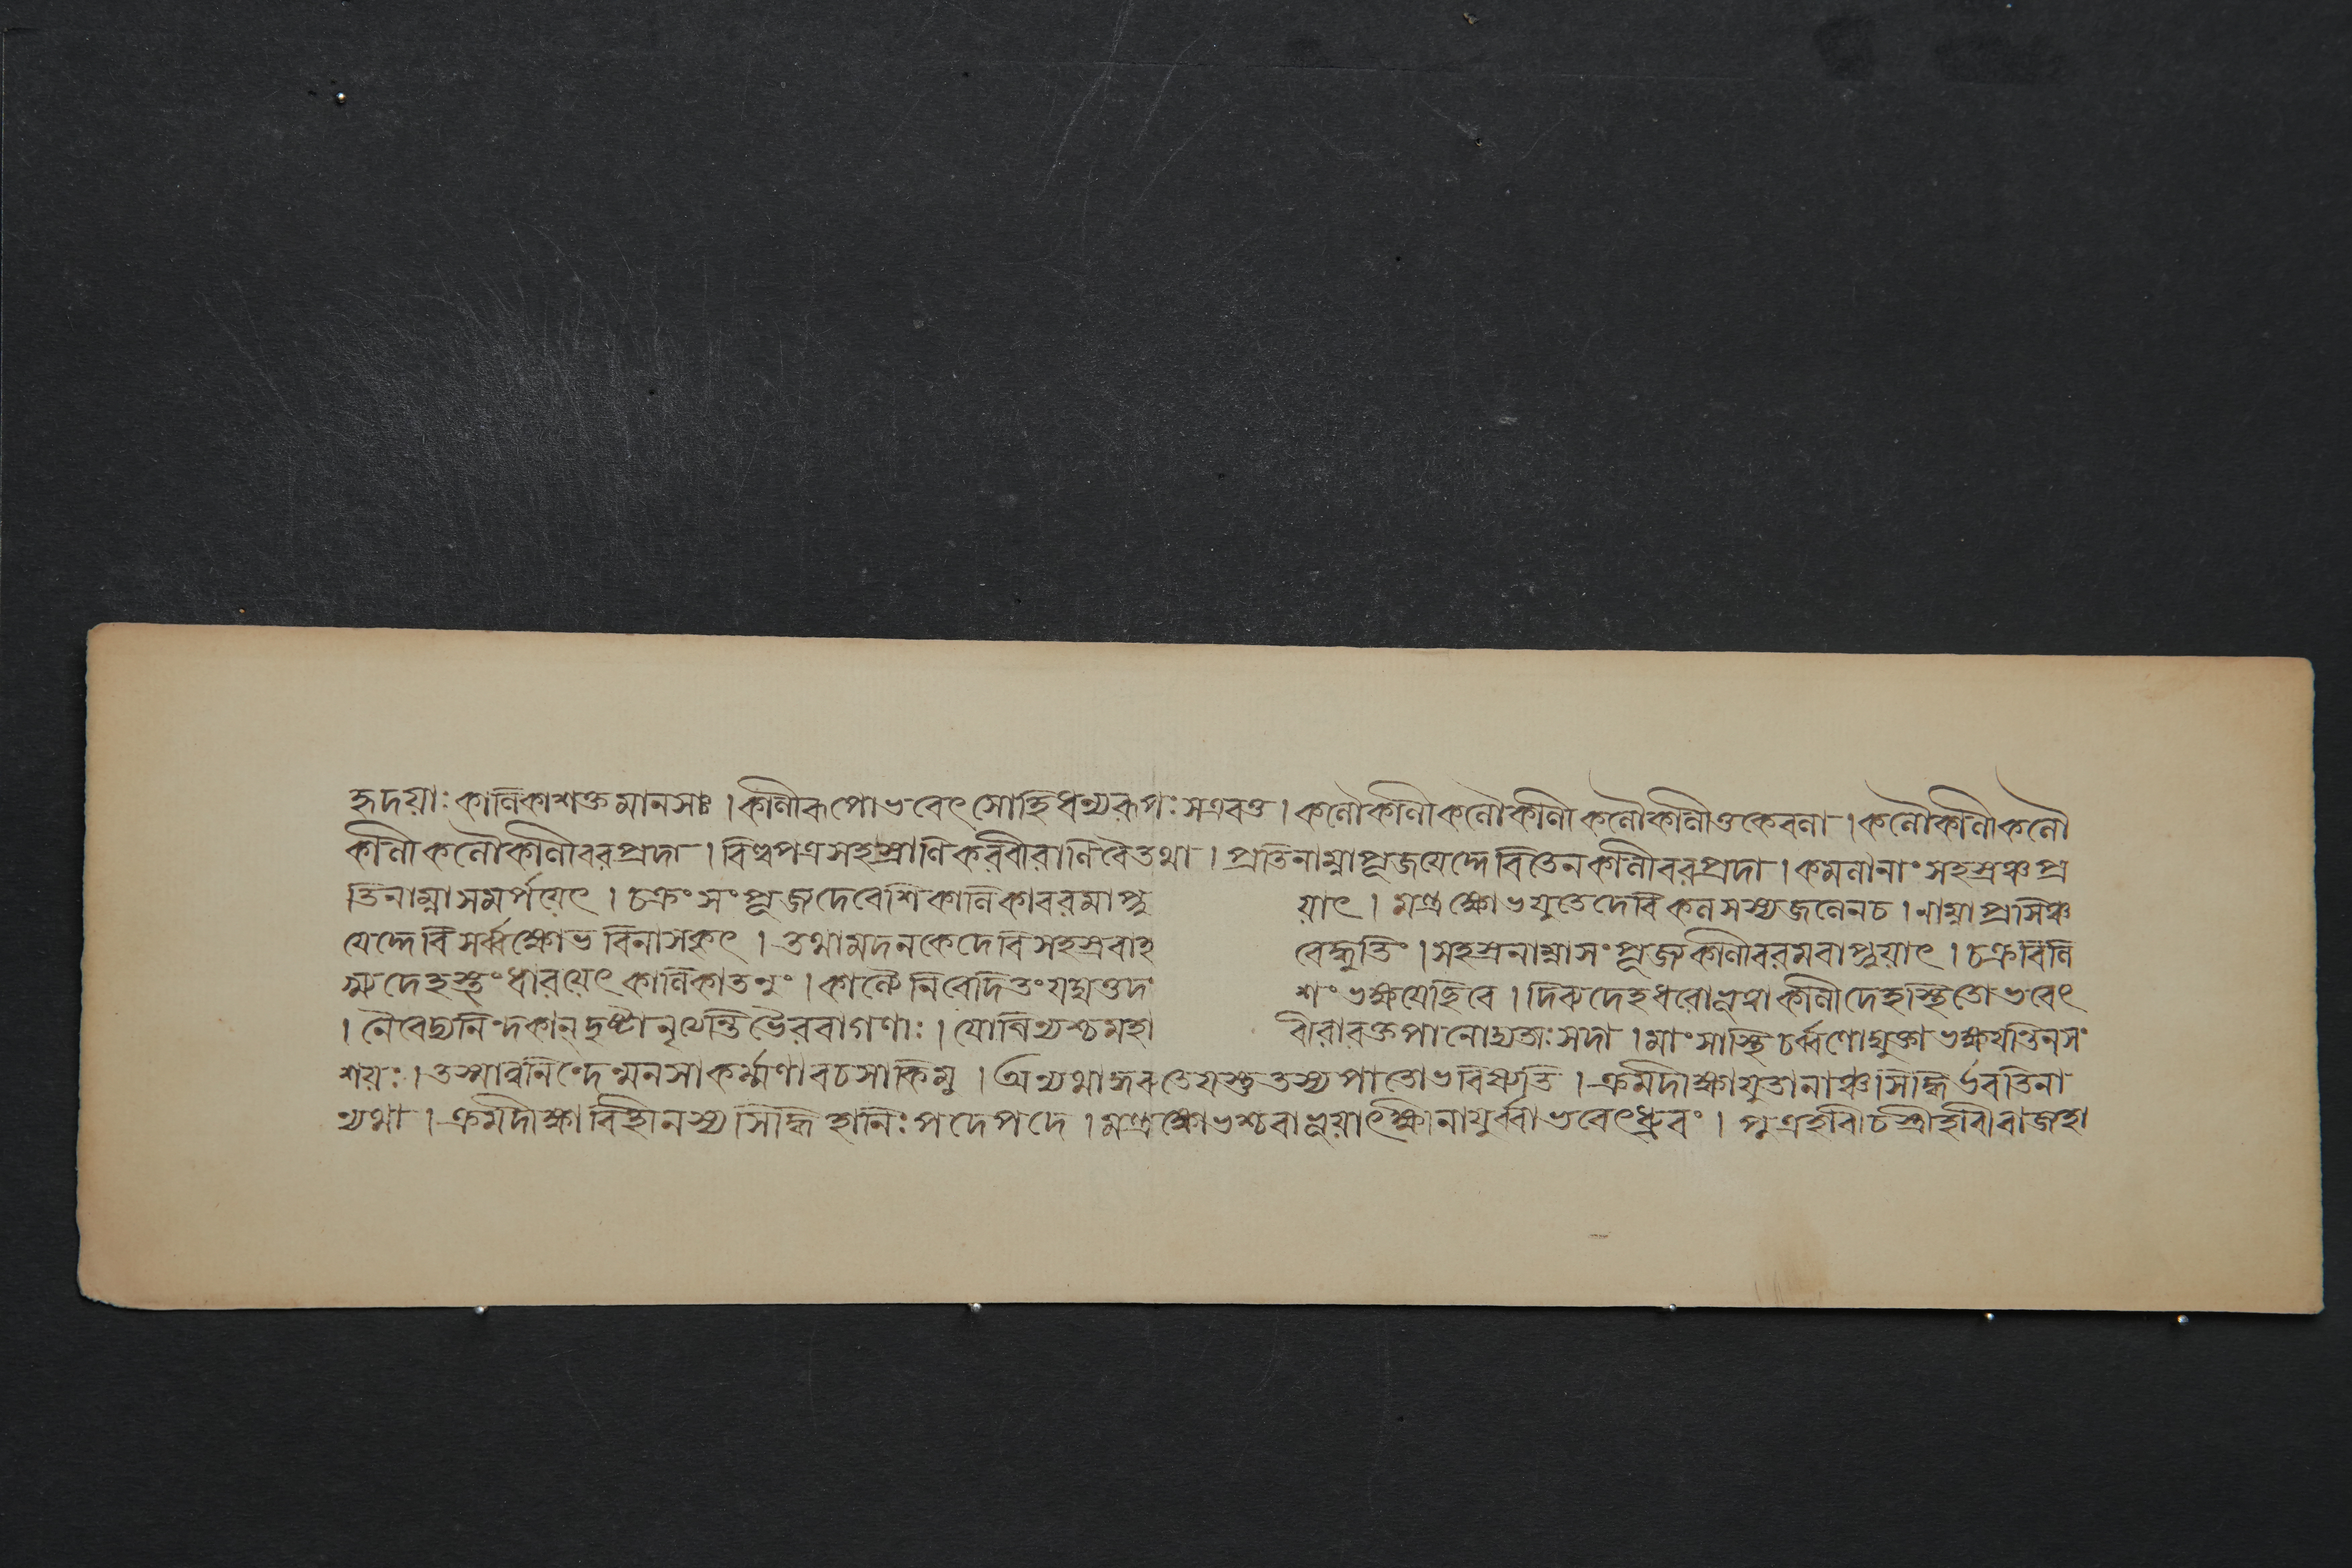 হৃদয়াঃ কালিকাশক্তমানসাঃ । কালীৰূপোভবেৎ সোহিধন্যৰূপঃ সএবতু । কলৌকালী কলৌকালী কলৌকালীতুকেবলা । কলৌকালীকলৌ
কালী কলৌকালীবৰপ্রদা । বিল্বপত্রসহস্রাণি কৰবীৰাণিবৈতথা । প্রতিনাম্নাপূজয়েদ্দেবিতেনকালীবৰপ্রদা । কমলানাং সহস্রঞ্চপ্র
তিনাম্নাসমর্পয়েৎ । চক্রং সংপূজ্যদেবেশিকালিকাবৰমাপ্নু য়াৎ । মন্ত্রক্ষোভযুতেদেবি কলসস্থজলেনচ । নাম্নাপ্রসিঞ্চ
য়েদ্দেবিসর্ব্বক্ষোভ বিনাসকৃৎ । তথামদনকেদেবিসহস্রবাহ বেদ্ধুতিং । সহস্রনাম্নাসংপূজ্যকালীবৰমবাপ্নুয়াৎ । চক্রবিলি
দেহস্থং ধাৰয়েৎ কালিকাতনুং । কাল্যৈ নিবেদিতং যদ্যত্তদ শং ভক্ষয়েচ্ছিবে । দিব্যদেহধৰোভূত্বাকালীদেহস্থিতোভবেৎ
। নৈবেদ্যনিন্দকান্ দুষ্টান্ নৃত্যন্তিভৈৰবাগণাঃ । যোগিন্যশ্চমহা বীৰাৰক্তপানোদ্যতাঃ সদা । মাংসাস্থিচর্ব্বণোদ্যুক্তাভক্ষয়ন্তিনসং
শয়ঃ । তস্মান্ননিন্দেন্মনসাকর্ম্মণাবচসাকিমু । অন্যথা যস্তুতস্যপাতোভবিষ্যতি । ক্রমদীক্ষাযুতানাঞ্চসিদ্ধির্ভবতিনা
ন্যথা । ক্রমদীক্ষাবিহীনস্যসিদ্ধিহানিঃ পদেপদে । মন্ত্রক্ষোভশ্চবাভূয়াৎক্ষীণায়ুর্ব্বাভবেৎধ্রুবং । পুত্রহাৰীচস্ত্রীহাৰীৰাজহা